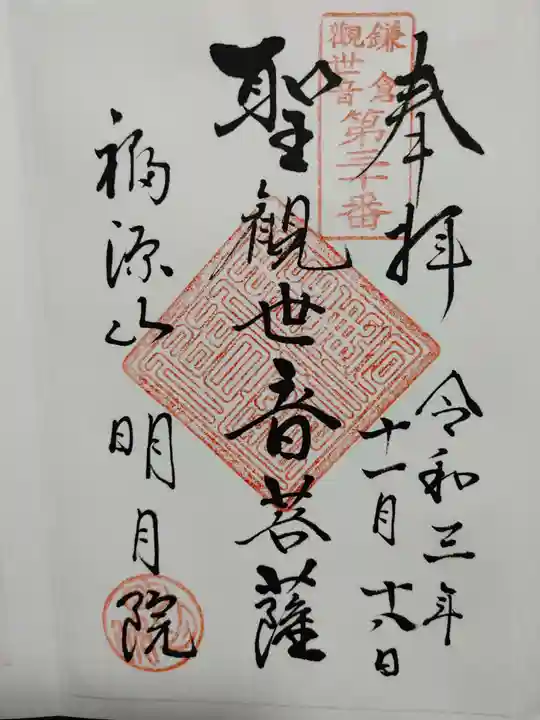 奉拝
鎌倉
觀世音
第三十番
令和三年
十一月十八日
聖観世音菩薩
福源山明月院